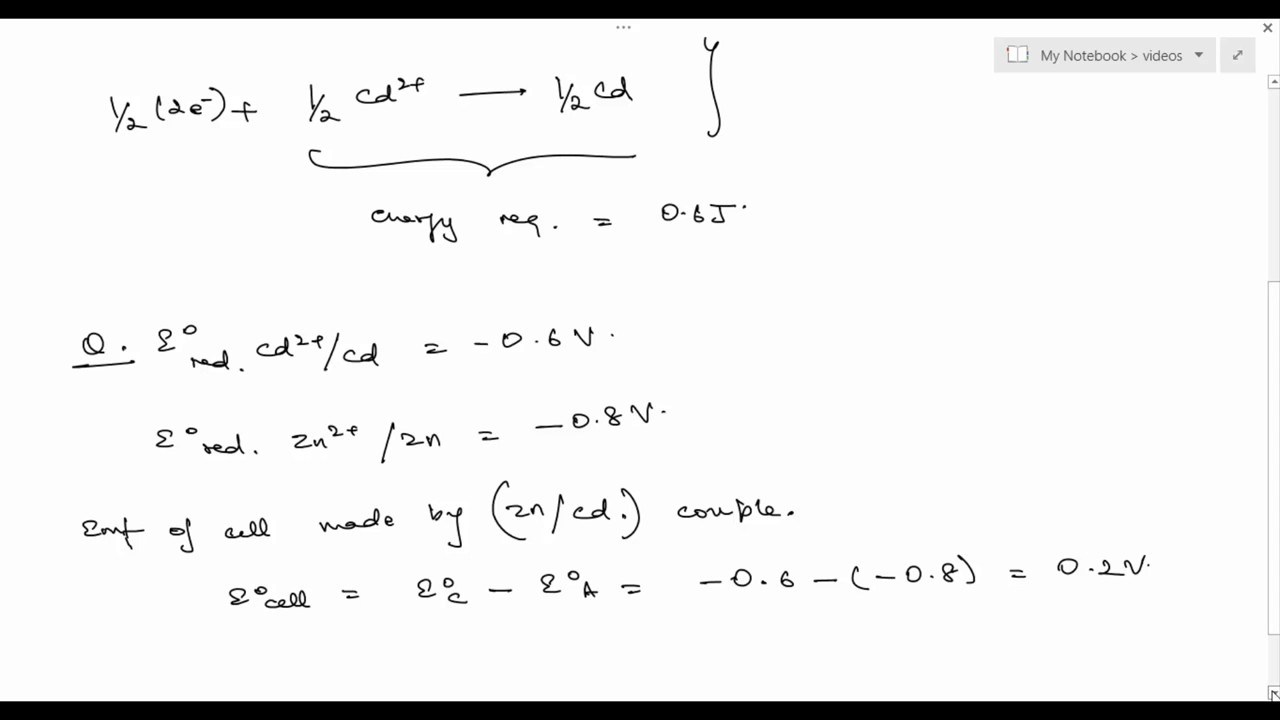 My Notebook > videos
1/2 (2e⁻) + 1/2 Cd²⁺ ⟶ 1/2 Cd }
energy req. = 0.6J.
Q. Ɛ⁰ red. Cd²⁺/Cd = -0.6V.
Ɛ⁰ red. Zn²⁺/Zn = -0.8V.
Emf of cell made by (Zn/Cd.) couple.
Ɛ⁰cell = Ɛ⁰C - Ɛ⁰A = -0.6 - (-0.8) = 0.2V.